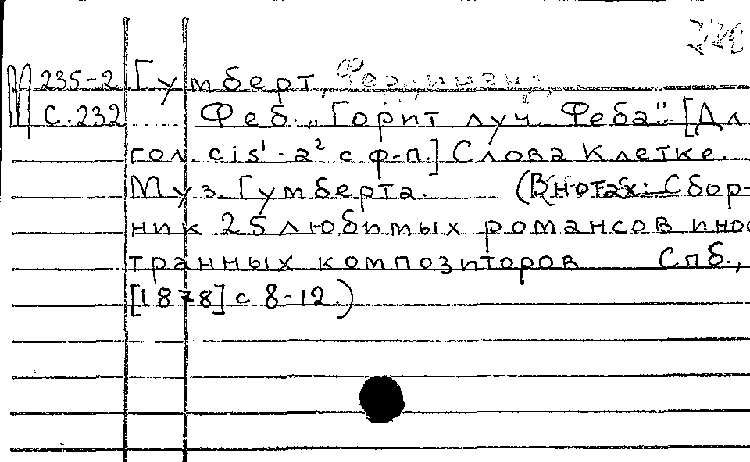 М 235-2 Гумберт, Фердинанд.
С. 232 Феб. „Горит луч Феба“. [Дл
гол. cis¹-a² с ф-п.] Слова Клетке.
Муз. Гумберта. (В нотах: Сбор-
ник 25 любимых романсов инос
транных композиторов Спб.,
[1878] с 8-12.)